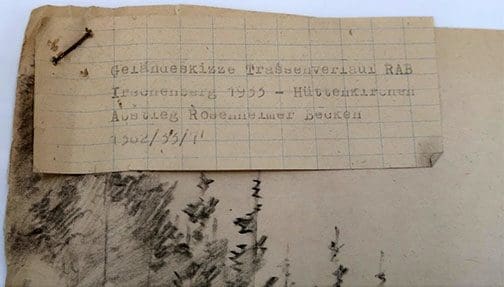 Geländeskizze Trassenverlauf RAB
Irschenberg 1935 - Hüttenkirchen
Abstieg Rosenheimer Becken